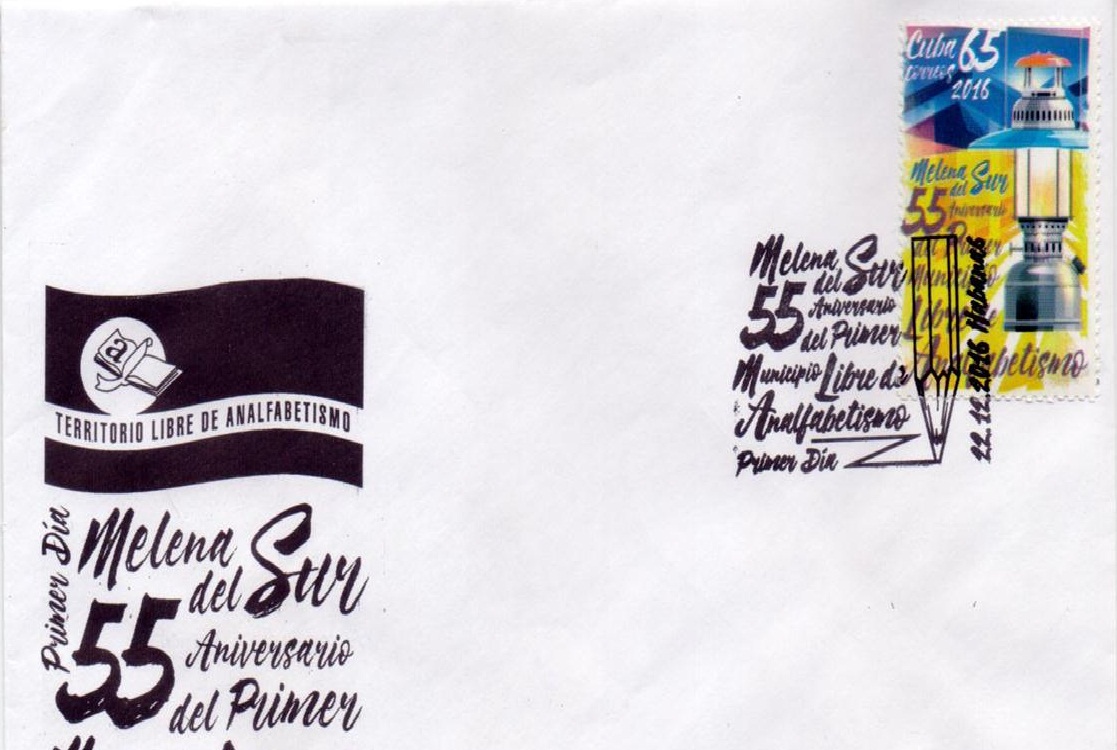 Cuba 65
correos
2016
Melena
del Sur
55 Aniversario
del Primer
Municipio
Libre de
Analfabetismo
Melena
del Sur
55 Aniversario
del Primer
Municipio Libre de
Analfabetismo
Primer Día
22.12.2016 Habana6
TERRITORIO LIBRE DE ANALFABETISMO
Primer Día
Melena
del Sur
55 Aniversario
del Primer